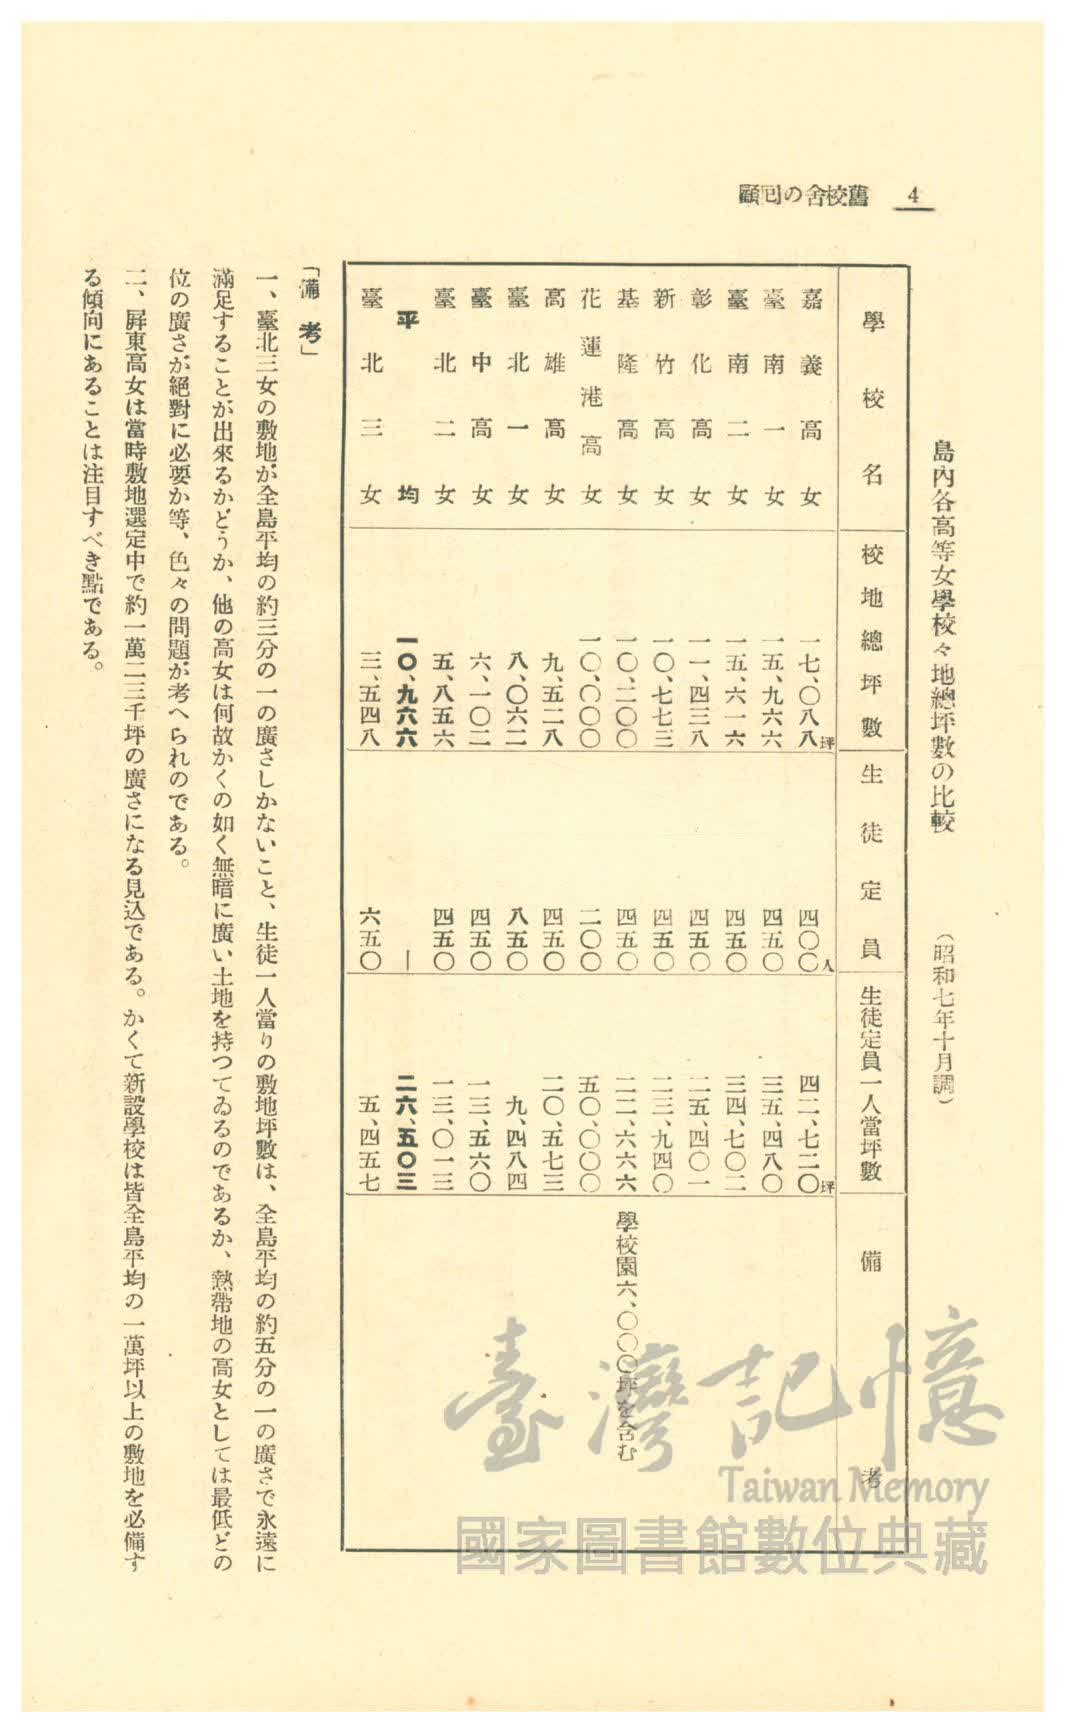 4
舊校舍の回顧
島內各高等女學校々地總坪數の比較 （昭和七年十月調）
學校名 校地總坪數 生徒定員 生徒定員一人當坪數 備考
嘉義高女 一七、〇八八坪 四〇〇人 四二、七二〇坪
臺南一女 一五、九六六 四五〇 三五、四八〇
臺南二女 一五、六一六 四五〇 三四、七〇二
彰化高女 一一、四三八 四五〇 二五、四〇一
新竹高女 一〇、七七三 四五〇 二三、九四〇
基隆高女 一〇、二〇〇 四五〇 二二、六六六 學校園六、〇〇〇坪を含む
花蓮港高女 一〇、〇〇〇 二〇〇 五〇、〇〇〇
高雄高女 九、五二八 四五〇 二〇、五七三
臺北一女 八、〇六二 八五〇 九、四八四
臺中高女 六、一〇二 四五〇 一三、五六〇
臺北二女 五、八五六 四五〇 一三、〇一三
平均 一〇、九六六 — 二六、五〇三
臺北三女 三、五四八 六五〇 五、四五七
「備考」
一、臺北三女の敷地が全島平均の約三分の一の廣さしかないこと、生徒一人當りの敷地坪數は、全島平均の約五分の一の廣さで永遠に
滿足することが出來るかどうか、他の高女は何故かくの如く無暗に廣い土地を持つてゐるのであるか、熱帶地の高女としては最低どの
位の廣さが絕對に必要か等、色々の問題が考へられのである。
二、屏東高女は當時敷地選定中で約一萬二三千坪の廣さになる見込である。かくて新設學校は皆全島平均の一萬坪以上の敷地を必備す
る傾向にあることは注目すべき點である。
臺灣記憶
Taiwan Memory
國家圖書館數位典藏